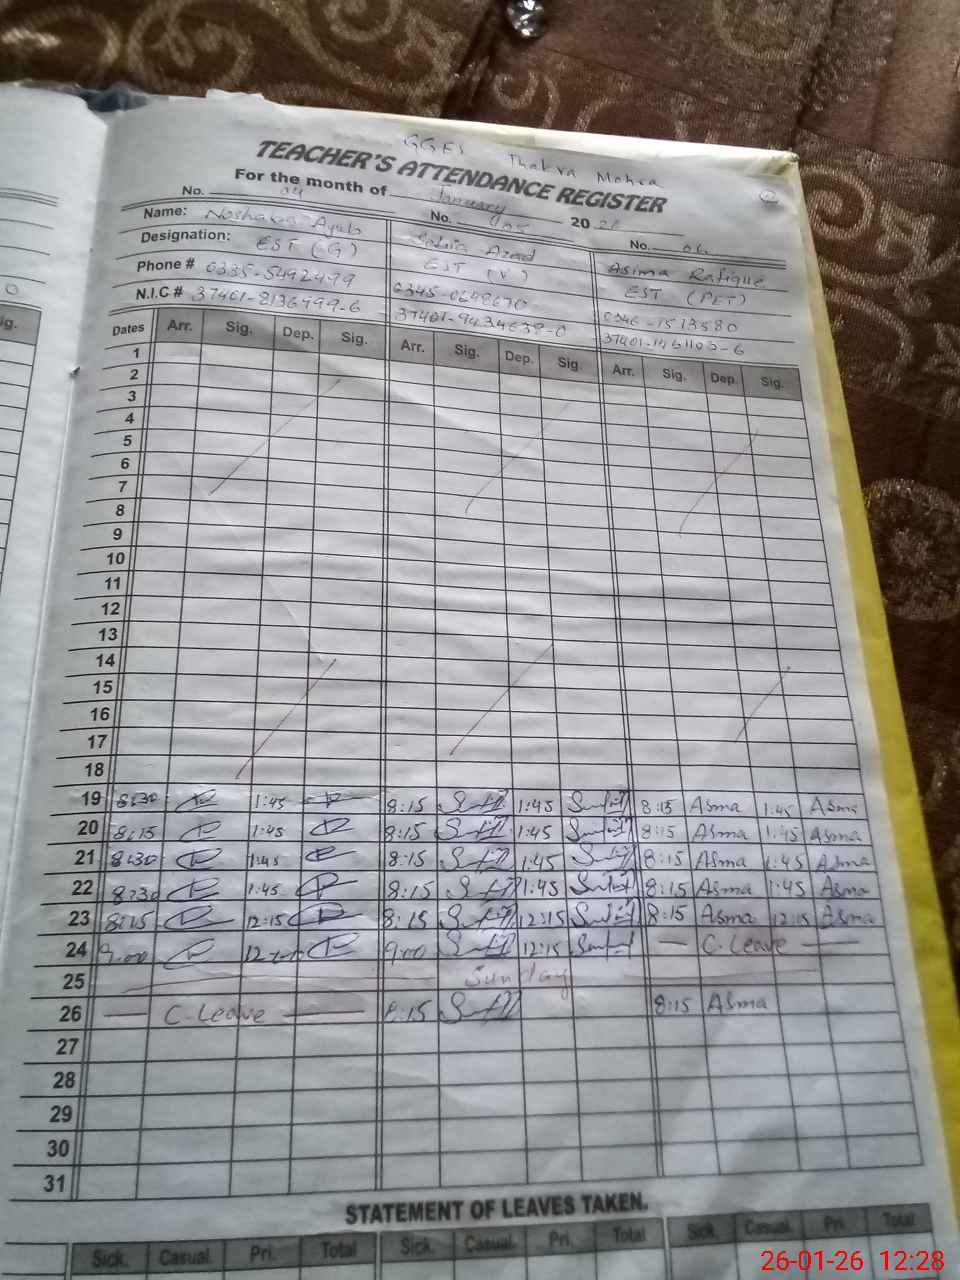 GGES Thakra Mohra
TEACHER'S ATTENDANCE REGISTER
For the month of January 20
No. 04 No. No. 06
Name: Noshaba Ayub Azad Asima Rafique
Designation: EST (G) EST (V) EST (PET)
Phone # 0335-5492499 0345-0648670 0346-1513580
N.I.C # 37401-8136999-6 37401-9434638-0
Dates Arr. Sig. Dep. Sig. Arr. Sig. Dep. Sig. Arr. Sig. Dep. Sig.
1
2
3
4
5
6
7
8
9
10
11
12
13
14
15
16
17
18
19 8:30 1:45 8:15 1:45 8:15 Asma 1:45 Asma
20 8:15 1:45 8:15 1:45 8:15 Asma 1:45 Asma
21 8:30 1:45 8:15 1:45 8:15 Asma 1:45 Asma
22 8:30 1:45 8:15 1:45 8:15 Asma 1:45 Asma
23 8:15 12:15 8:15 12:15 8:15 Asma 12:15 Asma
24 9:00 9:00 12:15 — C. Leave —
25 Sunday
26 — C. Leave — 8:15 8:15 Asma
27
28
29
30
31
STATEMENT OF LEAVES TAKEN.
Sick. Casual. Pri. Total Sick. Casual. Pri. Total Sick. Casual. Pri. Total
26-01-26 12:28